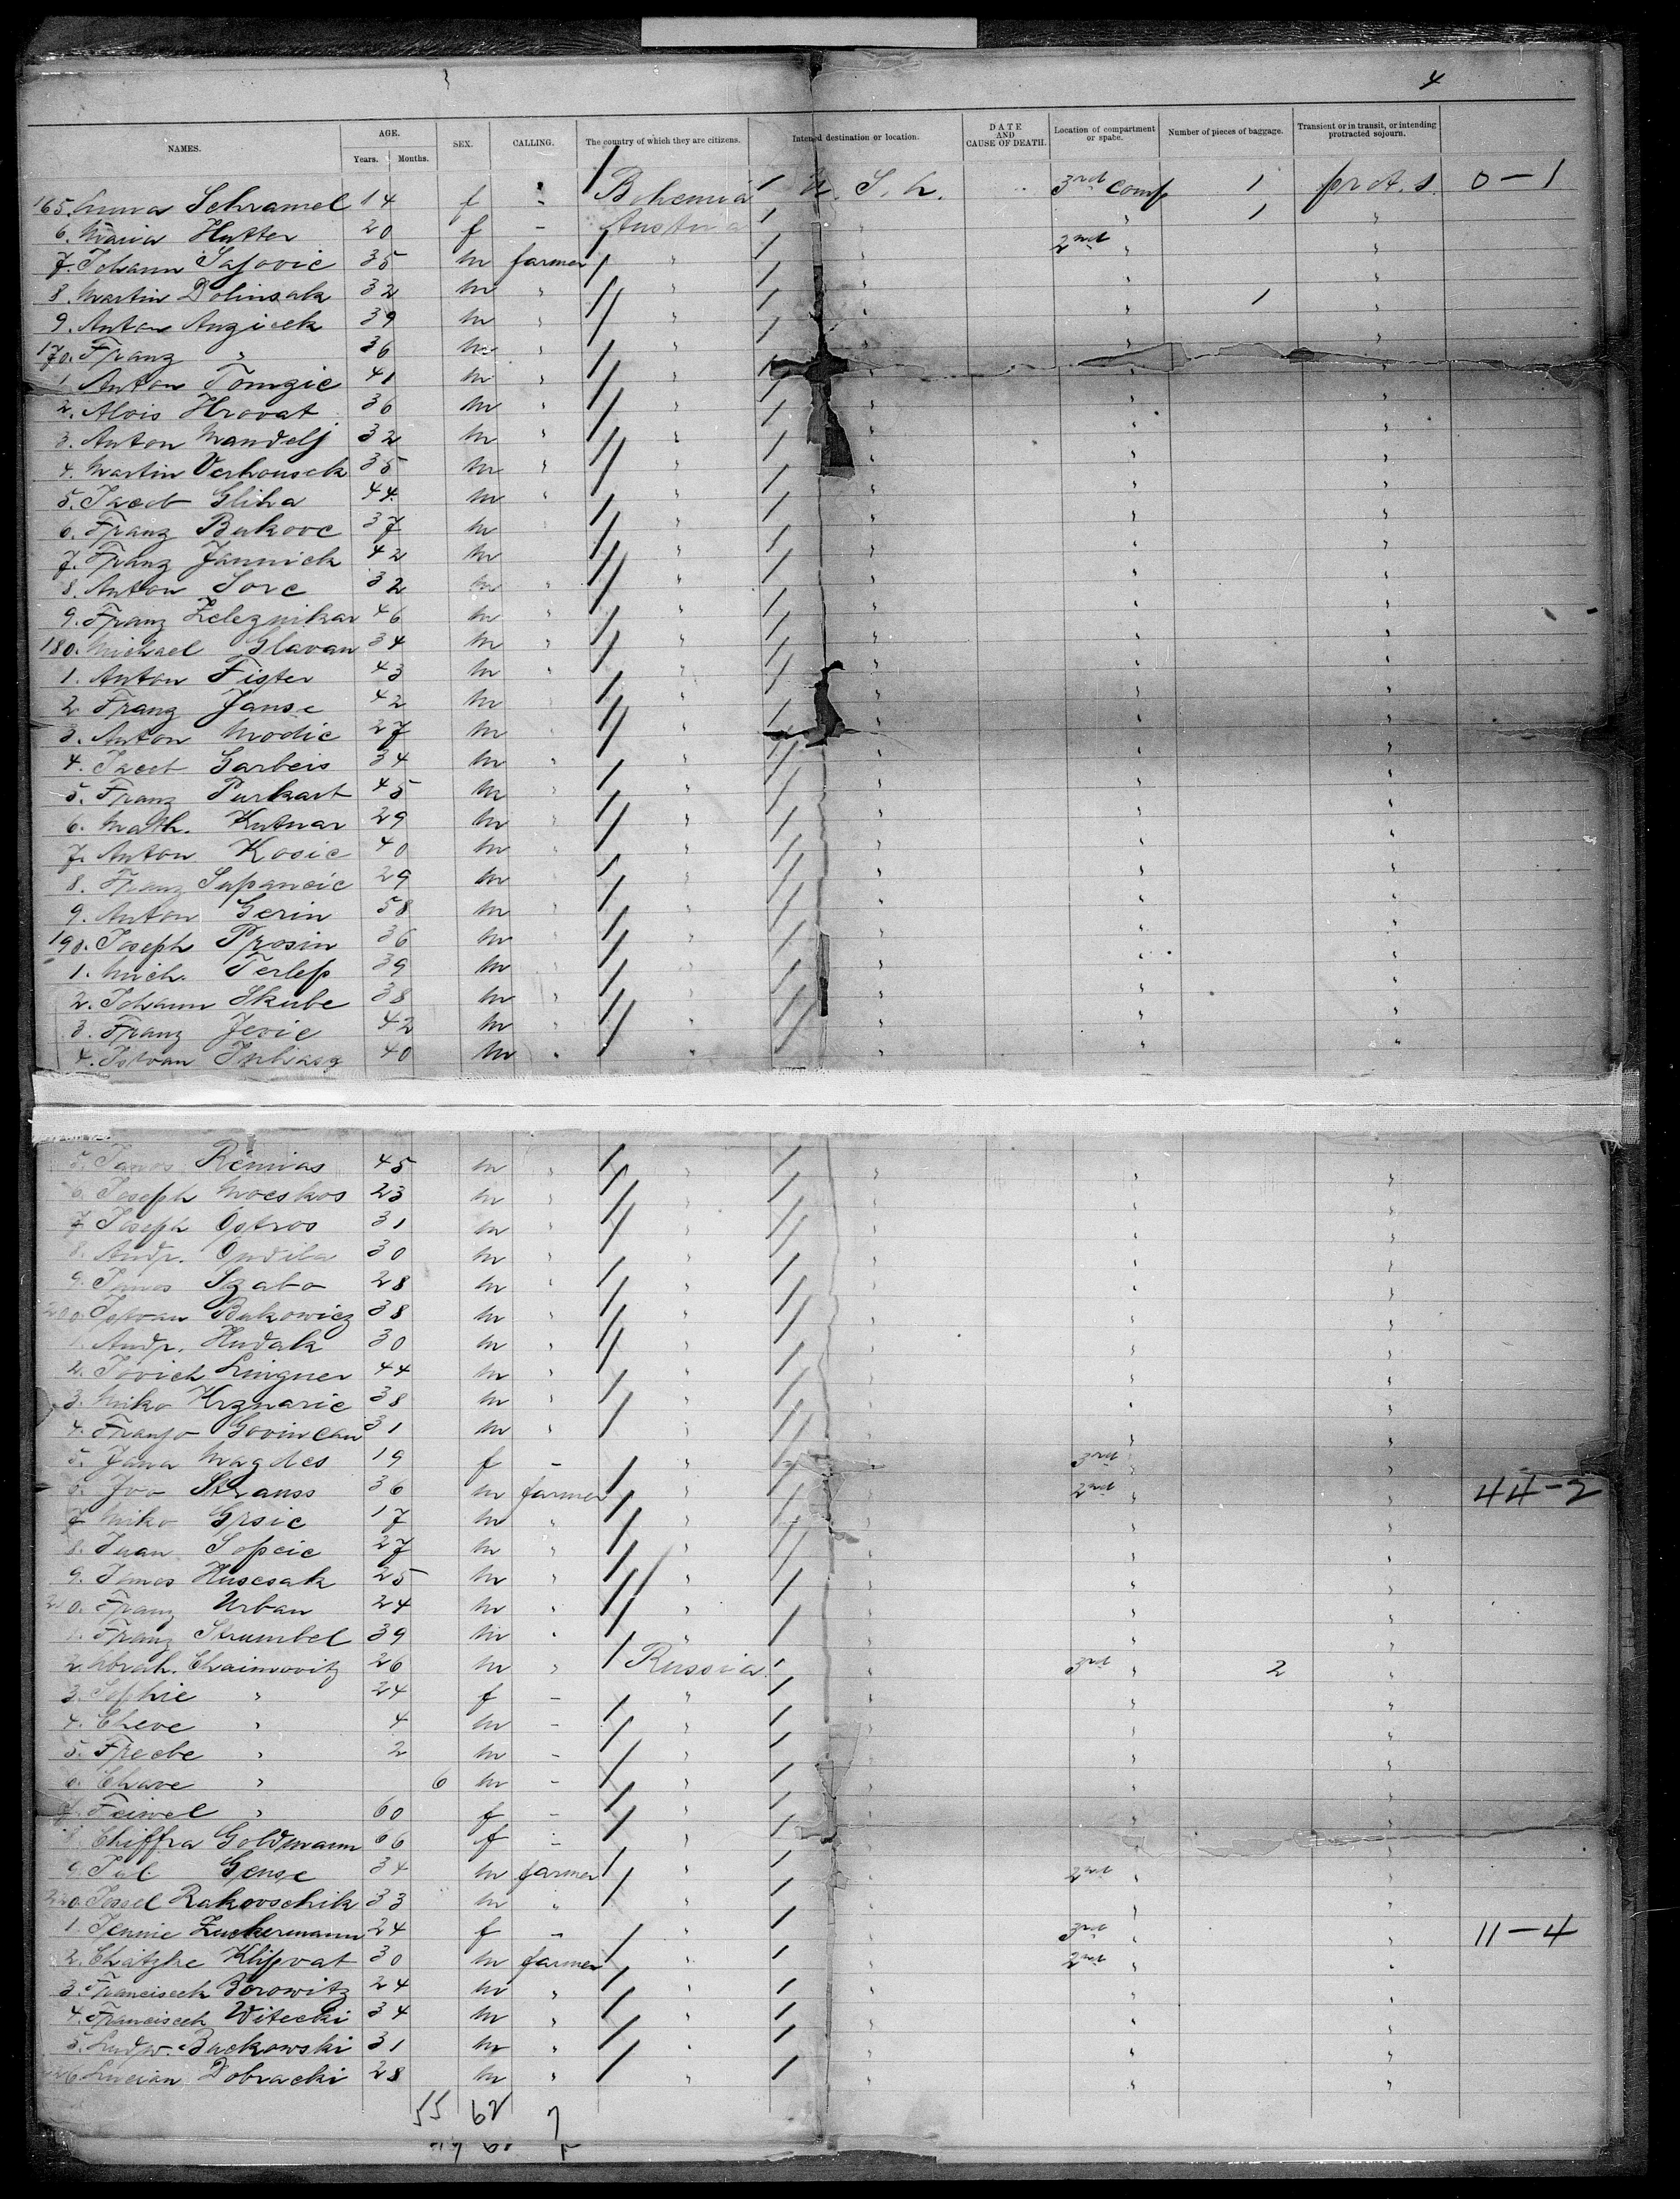 4
NAMES. AGE. Years. Months. SEX. CALLING. The country of which they are citizens. Intended destination or location. DATE AND CAUSE OF DEATH. Location of compartment or spabe. Number of pieces of baggage. Transient or in transit, or intending protracted sojourn.
165. Anna Schramel 14 f - Bohemia U. S. A. 3rd Comp 1 0-1
6. Maria Hutter 20 f - Austria " " 1 "
7. Johann Sajovic 35 m farmer " " 2nd " "
8. Martin Dolinsak 32 m " " " " "
9. Anton Anzicek 39 m " " " " 1 "
170. Franz " 36 m " " " " "
1. Anton Tomzic 41 m " " " "
2. Alois Hrovat 36 m " " " " "
3. Anton Mandelj 32 m " " " " "
4. Martin Verhousek 35 m " " " "
5. Jacob Gliha 44 m " " " " "
6. Franz Bukovc 37 m " " " " "
7. Franz Jannick 42 m " " " " "
8. Anton Sore 32 m " " " " "
9. Franz Zeleznikar 46 m " " " " "
180. Michael Glavan 34 m " " " " "
1. Anton Fister 43 m " " " " "
2. Franz Janse 42 m " " " " "
3. Anton Modic 27 m " " " " "
4. Jacob Garbeis 34 m " " " " "
5. Franz Purkart 45 m " " " " "
6. Math. Kutnar 29 m " " " " "
7. Anton Kosic 40 m " " " " "
8. Franz Supancic 29 m " " " " "
9. Anton Gerin 58 m " " " " "
190. Joseph Prosin 36 m " " " " "
1. Mich. Terlep 39 m " " " " "
2. Johann Skube 38 m " " " " "
3. Franz Jevic 42 m " " " " "
4. Istvan 40 m " " " " "
5. Janos Remias 45 m " " " " "
6. Joseph Mocskos 23 m " " " " "
7. Joseph Ostros 31 m " " " " "
8. Andr. 30 m " " " " "
9. Janos Szabo 28 m " " " " "
200. Istvan Bukowicz 38 m " " " " "
1. Andr. Hudak 30 m " " " " "
2. Jovich Lingner 44 m " " " " "
3. Miko Krznaric 38 m " " " " "
4. Franjo Govincan 31 m " " " " "
5. Jana Magdes 19 f - " " 3rd " "
6. Jvo Strauss 36 m farmer " " 2nd " " 44-2
7. Miko Grsic 17 m " " " " "
8. Juan Sopcic 27 m " " " " "
9. Janos Huscsak 25 m " " " " "
210. Franz Urban 24 m " " " " "
1. Franz Strumbel 39 m " " " " "
2. Abrah. Chaimovitz 26 m " Russia " 3rd " 2 "
3. Sophie " 24 f - " " " "
4. Cheve " 4 m - " " " "
5. Frecbe " 2 m - " " " "
6. Chave " 6 m - " " " "
7. Feiwel " 60 f - " " " "
8. Chiffra Goldmann 66 f - " " " "
9. Gense 34 m farmer " " 2nd " "
220. Jossel Rakovschik 33 m " " " " "
1. Jennie Zuckermann 24 f - " " 3rd " " 11-4
2. Chatzke Klipvat 30 m farmer " " 2nd " "
3. Franciscek Borowitz 24 m " " " " "
4. Franciscek Witecki 34 m " " " " "
5. Ludw. Backowski 31 m " " " " "
226 Lucian Dobracki 28 m " " " " "
55 62 7